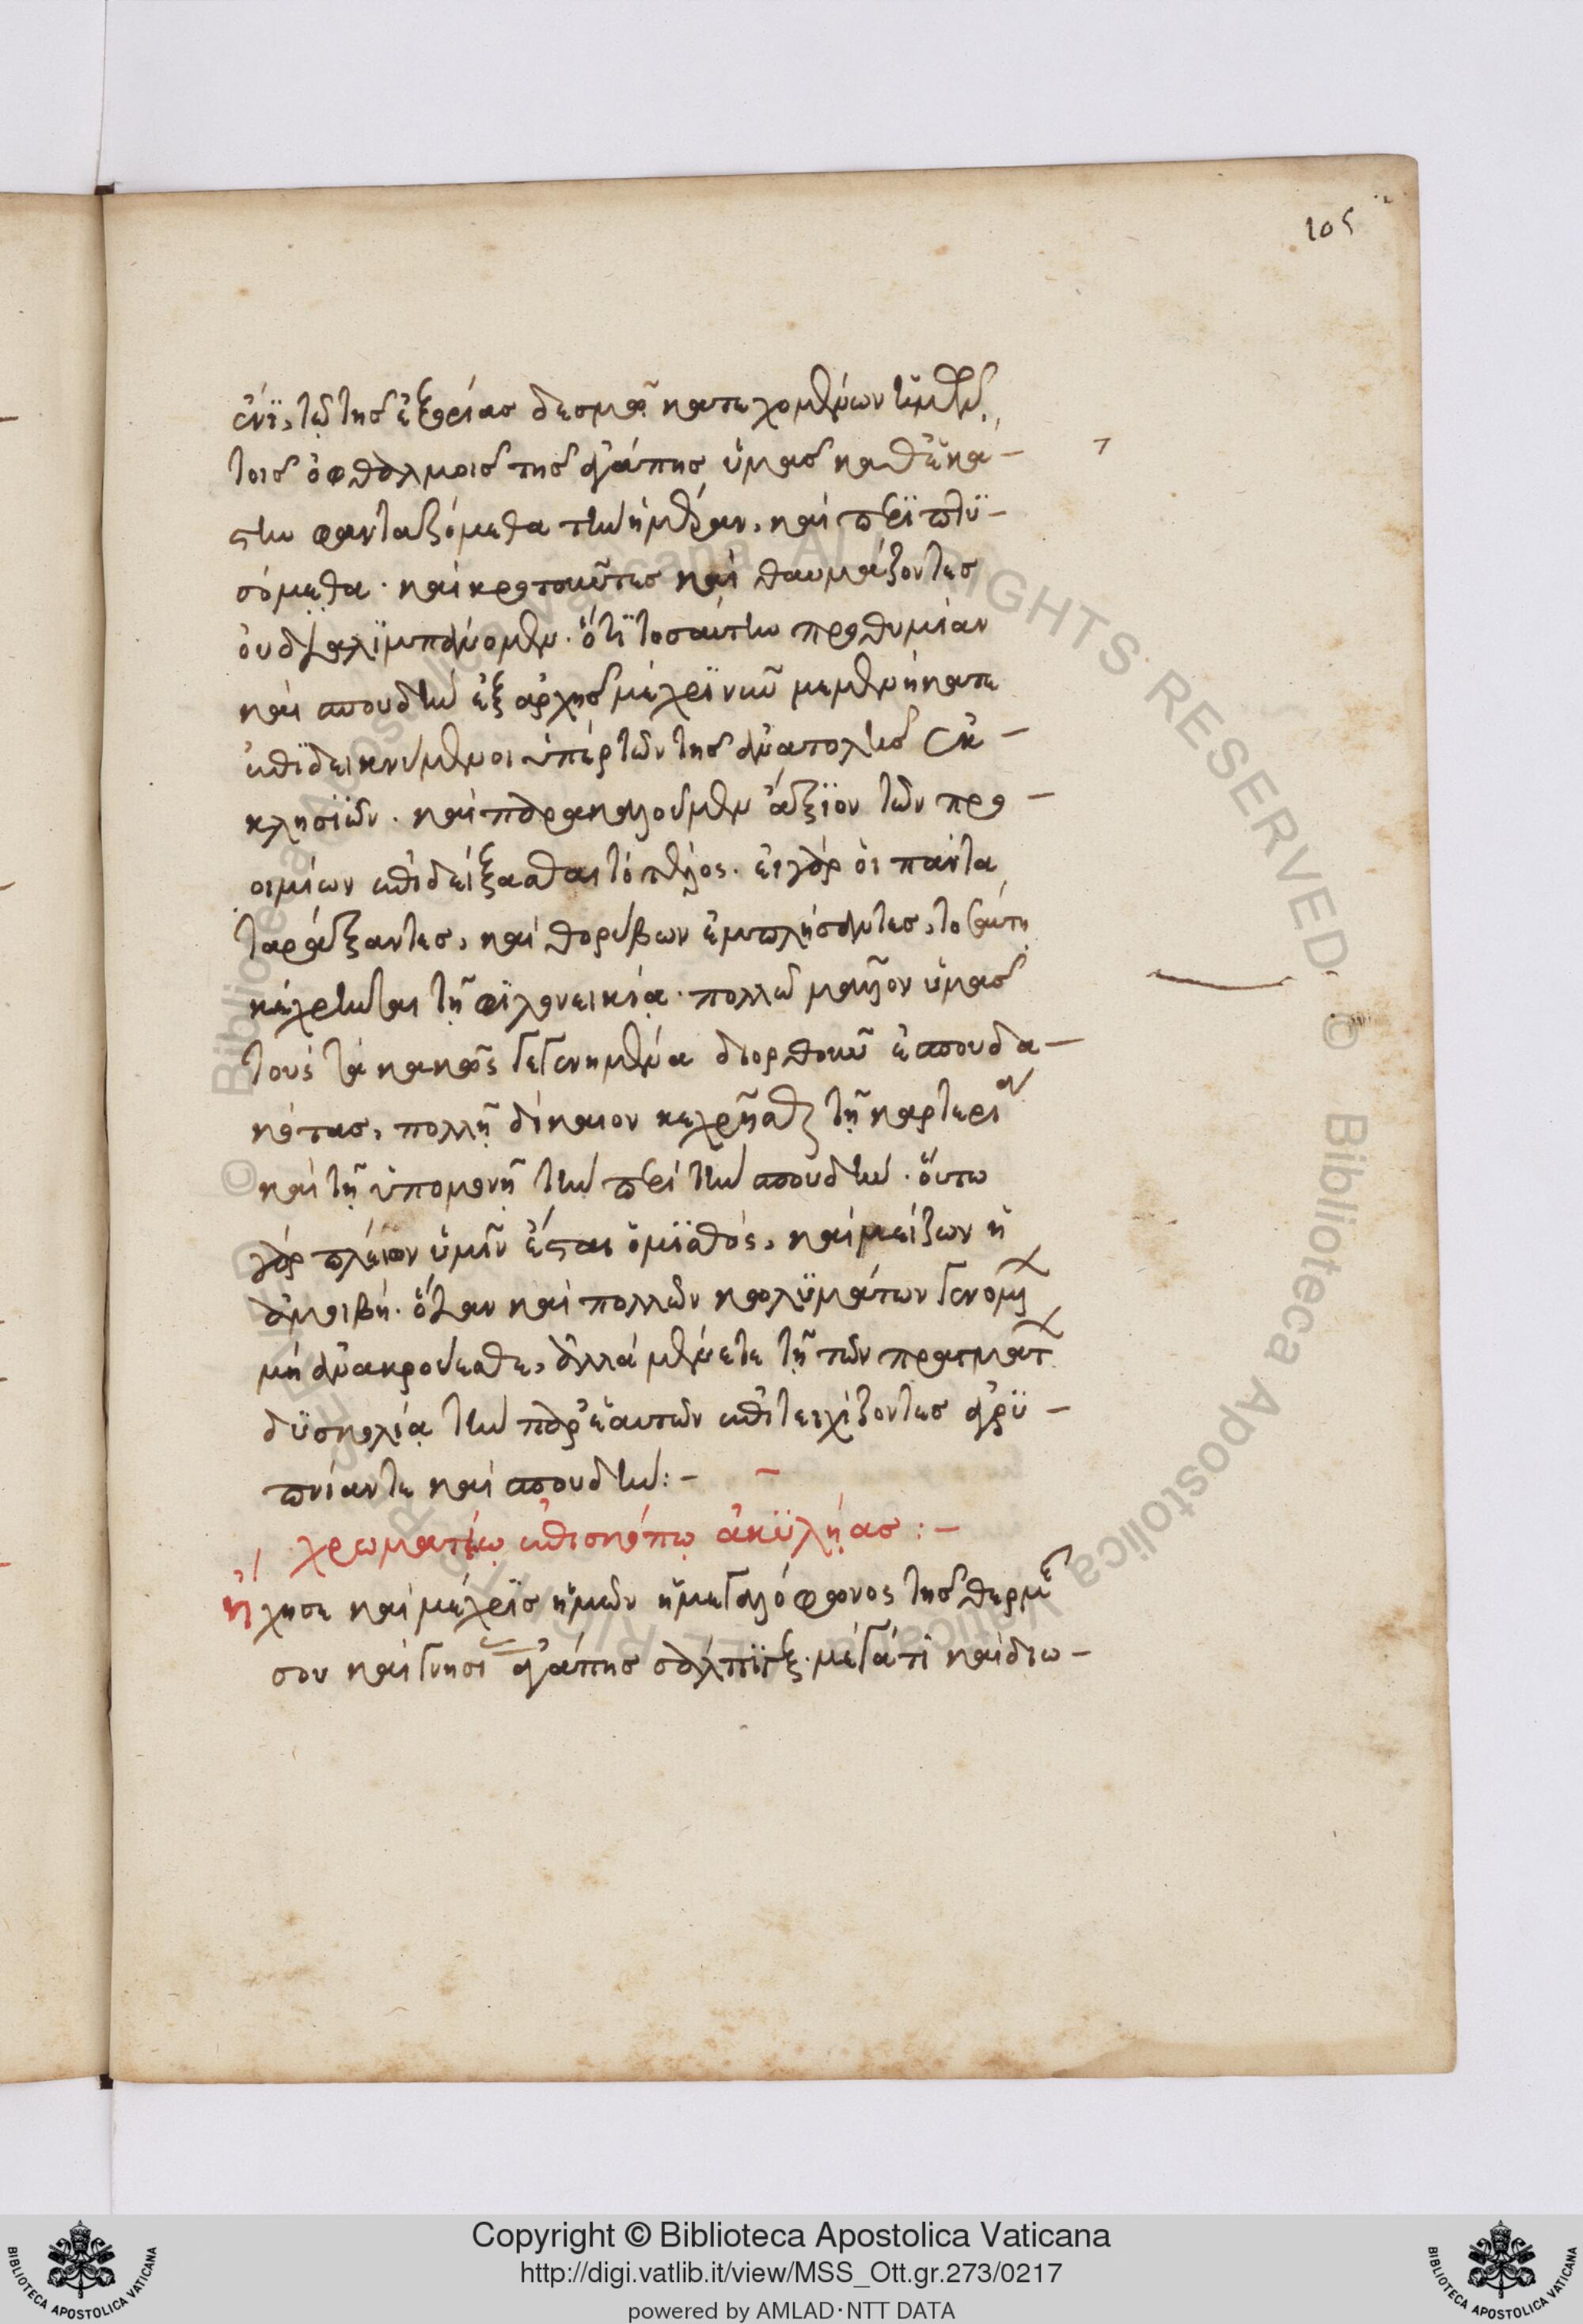 105
ἑνὶ, τῷ τῆς ἐξορίας δεσμῷ κατεχομένων ἡμῶν,
τοῖς ὀφθαλμοῖς τῆς ἀγάπης ὑμᾶς καθ' ἑκά-
στην φανταζόμεθα τὴν ἡμέραν, καὶ περιπτυ-
σόμεθα. καὶ κροτοῦντες καὶ θαυμάζοντες
οὐ διαλιμπάνομεν. ὅτι τοσαύτην προθυμίαν
καὶ σπουδὴν ἐξ ἀρχῆς μέχρι νῦν μεμενήκατε
ἐπιδεικνύμενοι ὑπὲρ τῶν τῆς ἀνατολῆς ἐκ-
κλησιῶν. καὶ παρακαλοῦμεν ἄξιον τῶν προ-
οιμίων ἐπιδείξασθαι τὸ τέλος. εἰ γὰρ οἱ πάντα
ταράξαντες, καὶ θορύβων ἐμπλήσαντες, τοσαύτῃ
κέχρηνται τῇ φιλονεικίᾳ. πολλῷ μᾶλλον ὑμᾶς
τοὺς τὰ κακῶς γεγενημένα διορθοῦν ἐσπουδα-
κότας, πολλῇ δίκαιον κεχρῆσθαι τῇ καρτερίᾳ
καὶ τῇ ὑπομονῇ τὴν περὶ τὴν σπουδήν. οὕτω
γὰρ πλείων ὑμῖν ἔσται ὁ μισθός, καὶ μείζων ἡ
ἀμοιβή. ὅταν καὶ πολλῶν κωλυμάτων γενομένων
μὴ ἀνακρούεσθε, ἀλλὰ μένετε τῇ τῶν πραγμάτων
δυσκολίᾳ τὴν παρ' ἑαυτῶν ἐπιτειχίζοντες ἀγρυ-
πνίαν τε καὶ σπουδήν:-
χρωματίῳ ἐπισκόπῳ ἀκυληίας:-
ἤχησε καὶ μέχρις ἡμῶν ἡ μεγαλόφωνος τῆς θερμῆς
σου καὶ γνησίας ἀγάπης σάλπιγξ. μέγα τί καὶ διω-
Copyright © Biblioteca Apostolica Vaticana
http://digi.vatlib.it/view/MSS_Ott.gr.273/0217
powered by AMLAD·NTT DATA